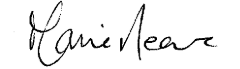 Marie Neave